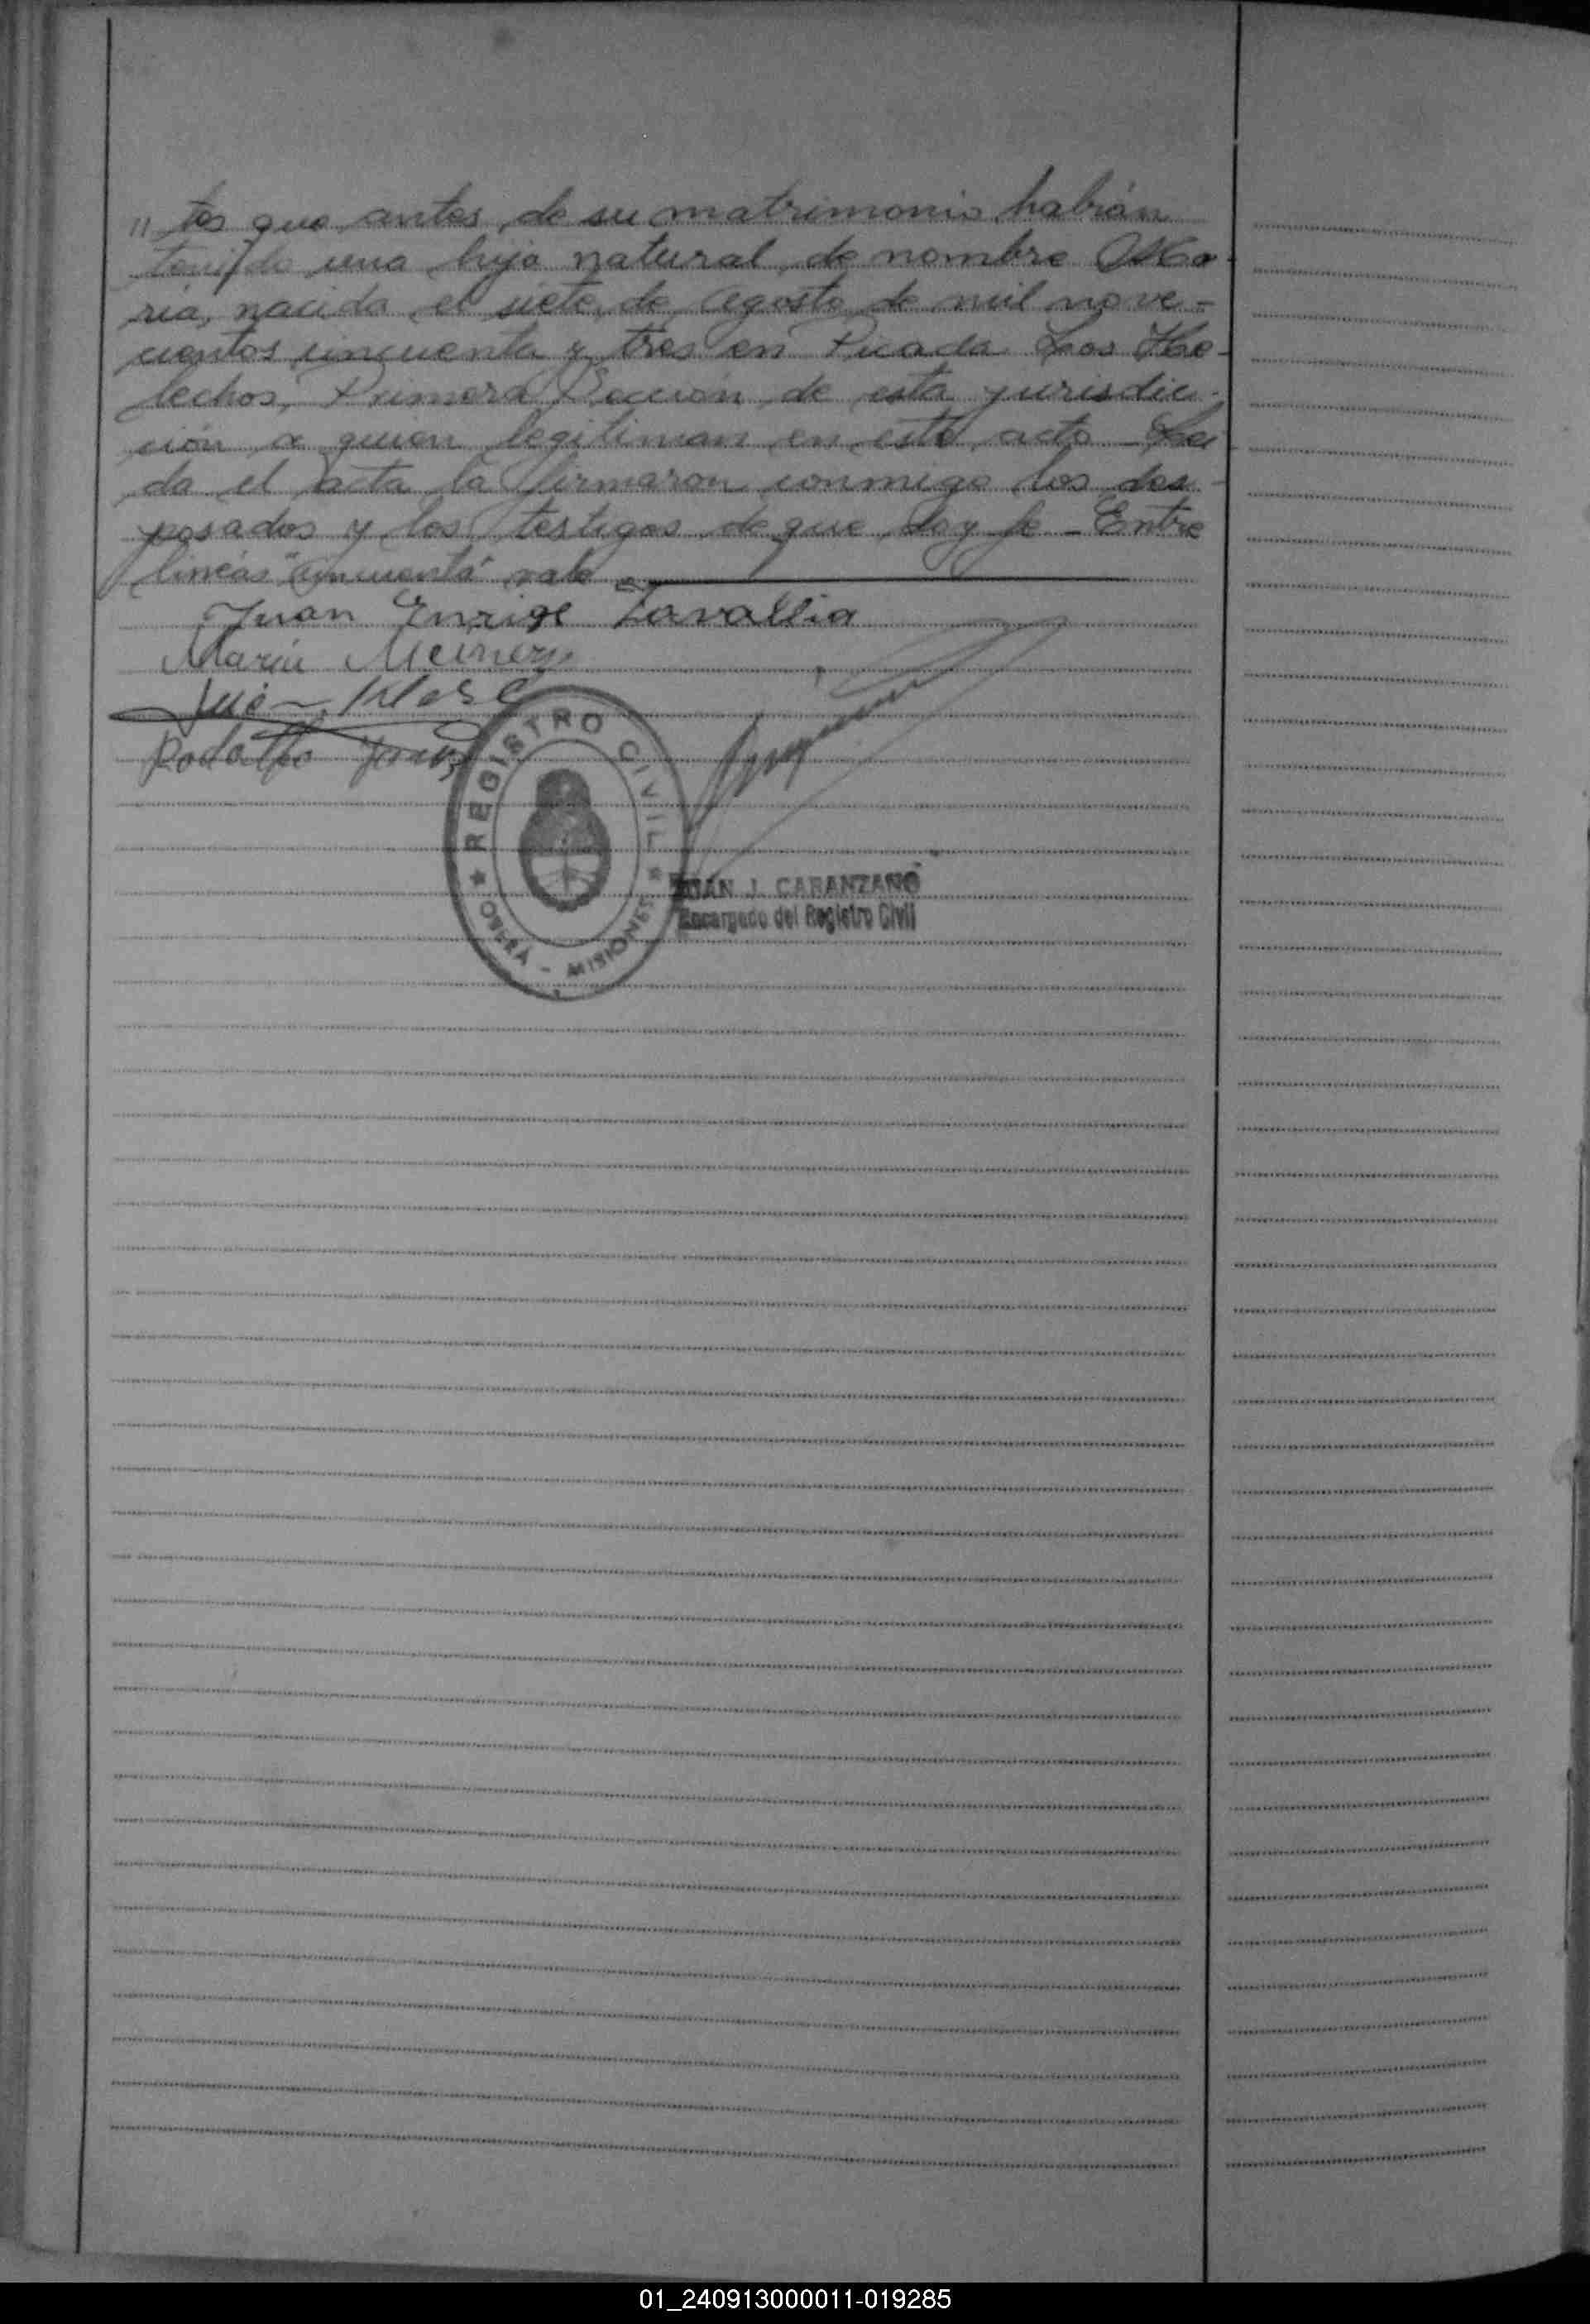 " tes que antes de su matrimonio habián
tenido una hija natural de nombre Ma-
ria, nacida el siete de Agosto de mil nove-
cientos cincuenta y tres en Picada Los He-
lechos, Primera Sección de esta jurisdic-
ción a quien legitiman en este acto - Lei
da el acta la firmaron conmigo los des-
posados y los testigos de que doy fe - Entre
lineas "cincuenta" vale
Juan Enrige Zavallia
Maria
Rodolfo
REGISTRO CIVIL
OBERA - MISIONES
JUAN J. CARANZANO
Encargado del Registro Civil
01_240913000011-019285